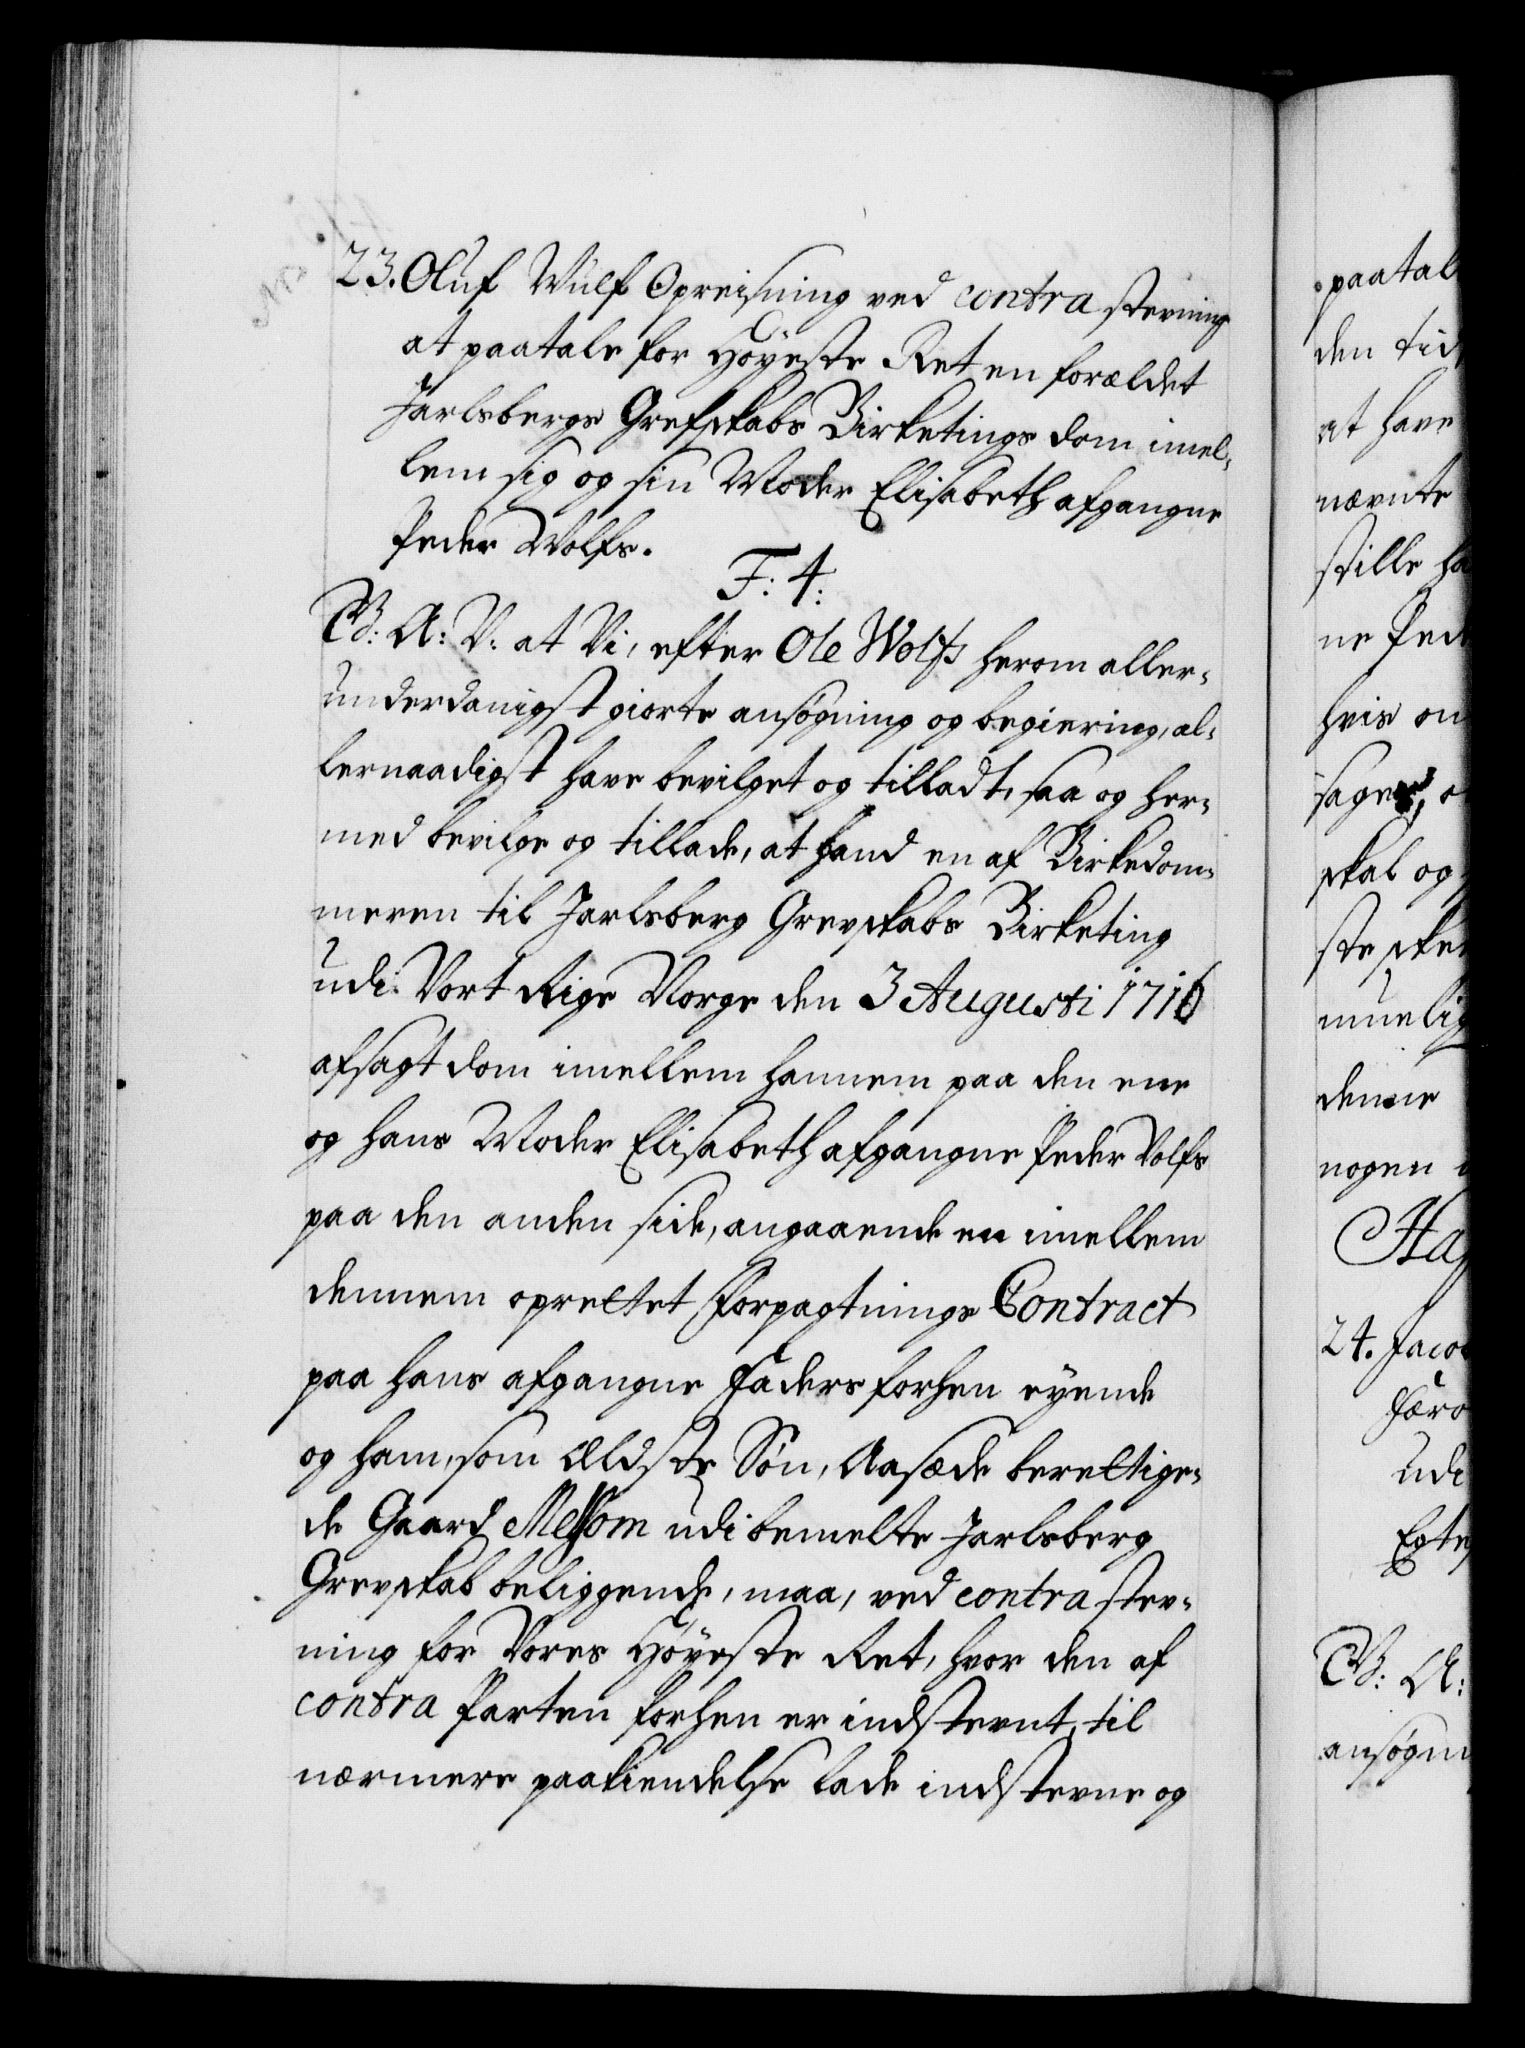 23. Oluf Wulf Opreisning ved contra stevning
at paatale for Höyeste Ret en forældet
Jarlsbergs Grefskabs Birketings dom imel-
lem sig og sin Moder Elisabeth afgangne
Peder Wolfs.
F: 4:
G: A: V: at Vi, efter Ole Wolfs herom aller-
underdanigst giorte ansøgning og begiering, al-
lernaadigst have bevilget og tilladt, saa og her-
med bevilge og tillade, at hand en af Birkedom-
meren til Jarlsberg Grevskabs Birketing
udi Vort Rige Norge den 3 Augusti 1716
afsagt dom imellem hannem paa den ene
og hans Moder Elisabeth afgangne Peder Volfs
paa den anden side, angaaende en imellem
dennem oprettet Forpagtnings Contract
paa hans afgangne Faders forhen eyende
og ham, som Ældste Søn, Aasæde berettige-
de Gaard Melsom udi bemelte Jarlsberg
Grevskab beliggende, maa, ved contra stev-
ning for Vores Höyeste Ret, hvor den af
contra Parten forhen er indstevnt, til
nærmere paakiendelse lade indstevne og
paatal
den tid
at have
nævnte
stille ha
ne Ped
hvis on
sage
skal og
ste ske
muelig
denne
nogen
24. Jacob
udi
G: A:
ansøgn